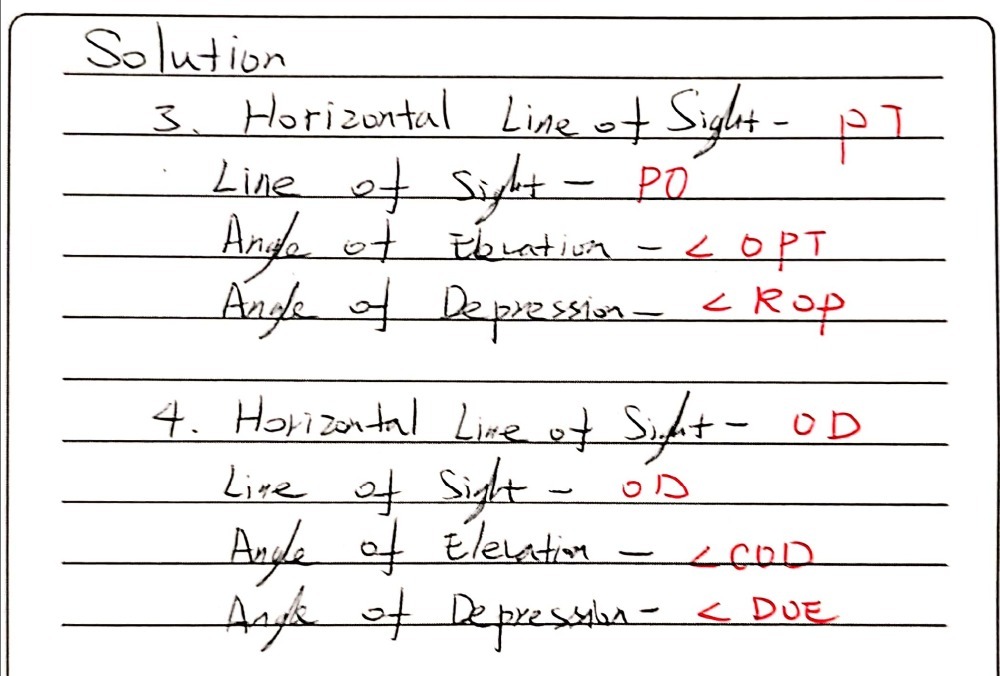 Solution
3. Horizontal Line of Sight - PT
Line of Sight - PO
Angle of Elevation - < OPT
Angle of Depression - < ROP
4. Horizontal Line of Sight - OD
Line of Sight - OD
Angle of Elevation - < COD
Angle of Depression - < DOE